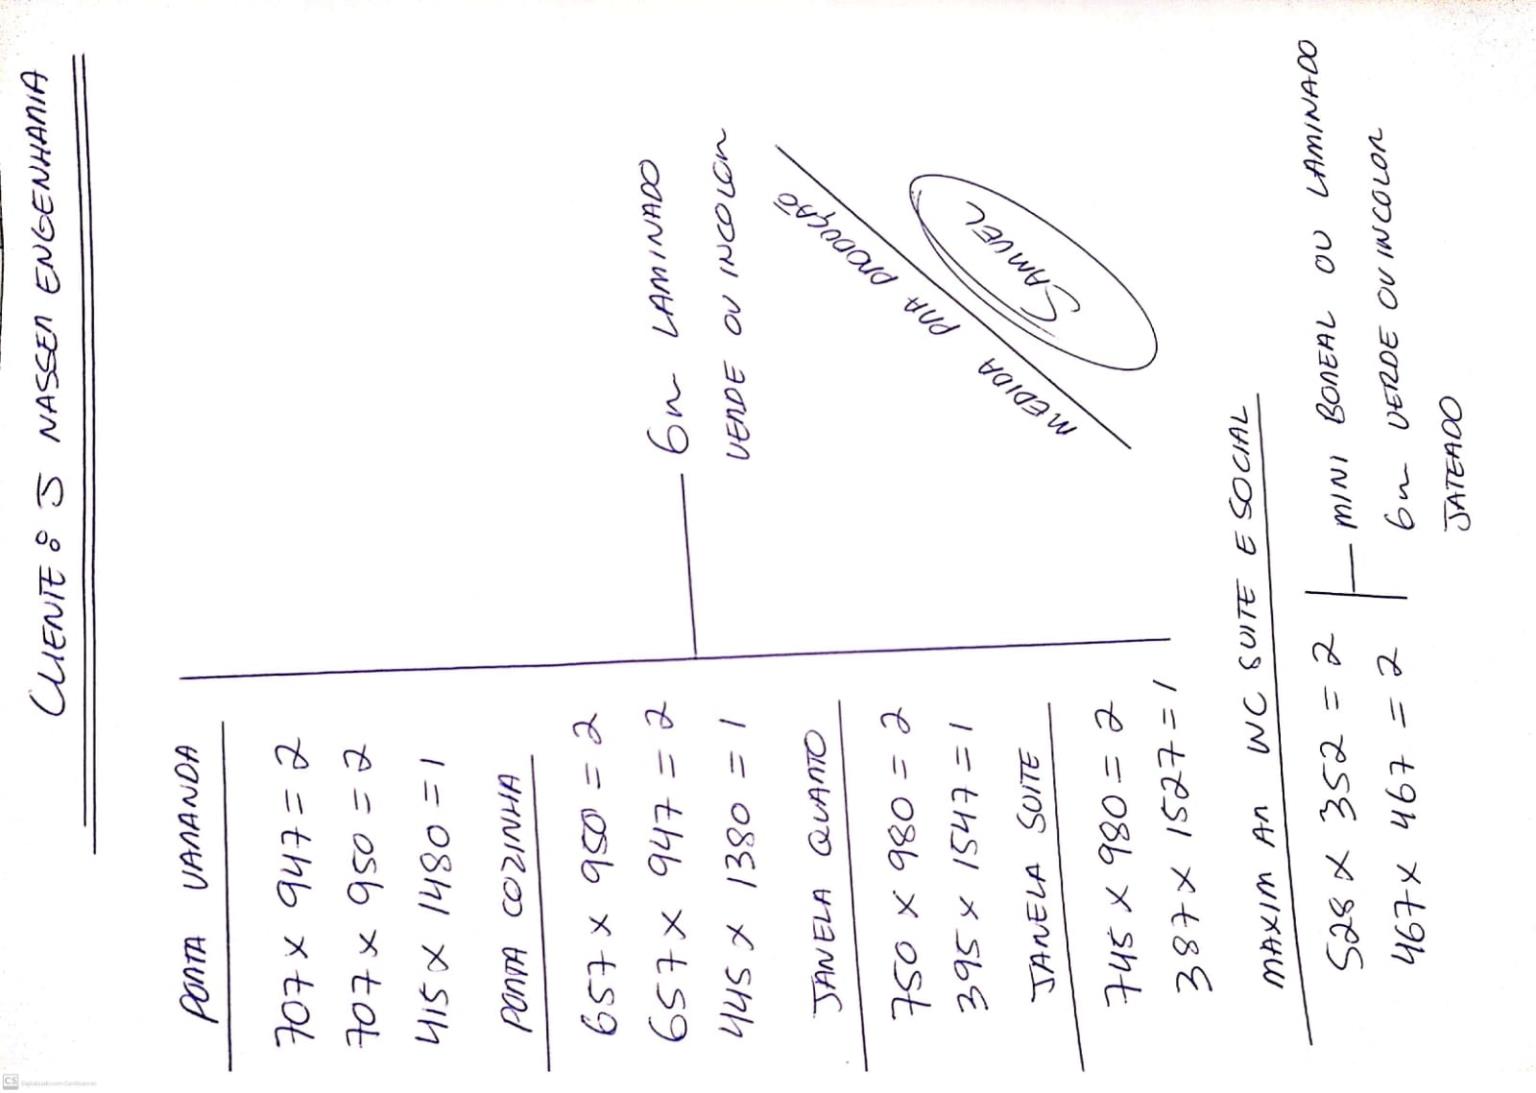 CLIENTE: J NASSER ENGENHARIA
PORTA VARANDA
707 x 947 = 2
707 x 950 = 2
415 x 1480 = 1
PORTA COZINHA
657 x 950 = 2
657 x 947 = 2
445 x 1380 = 1
6m LAMINADO
VERDE OU INCOLOR
JANELA QUARTO
750 x 980 = 2
395 x 1547 = 1
JANELA SUITE
745 x 980 = 2
387 x 1527 = 1
MEDIDA PRA PRODUÇÃO
SAMUEL
MAXIM AR WC SUITE E SOCIAL
528 x 352 = 2
467 x 467 = 2
MINI BOREAL OU LAMINADO
6m VERDE OU INCOLOR
JATEADO
CS Digitalizado com CamScanner